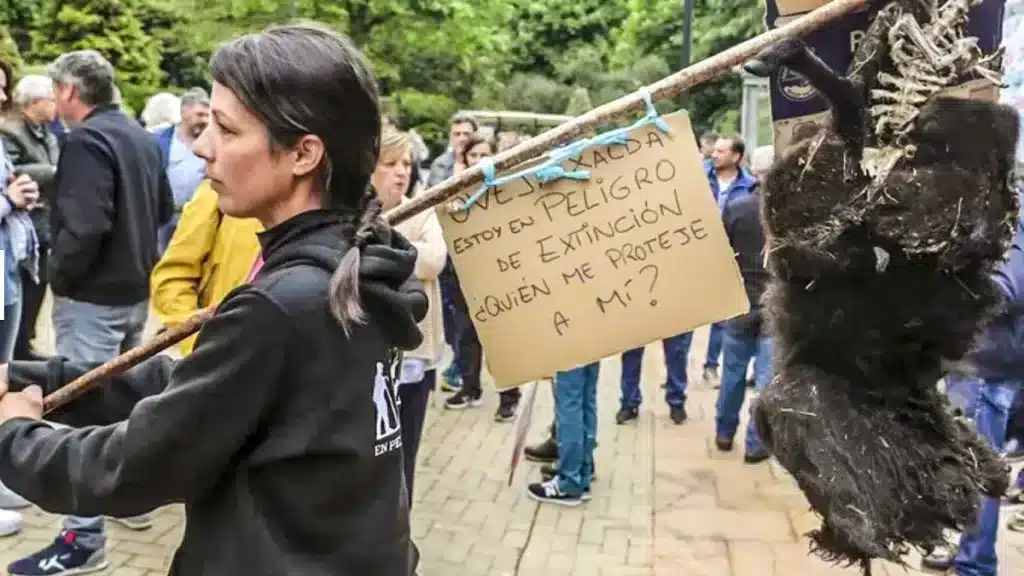 OVEJA XALDA
ESTOY EN PELIGRO
DE EXTINCIÓN
¿QUIÉN ME PROTEJE
A MÍ?
EN PE